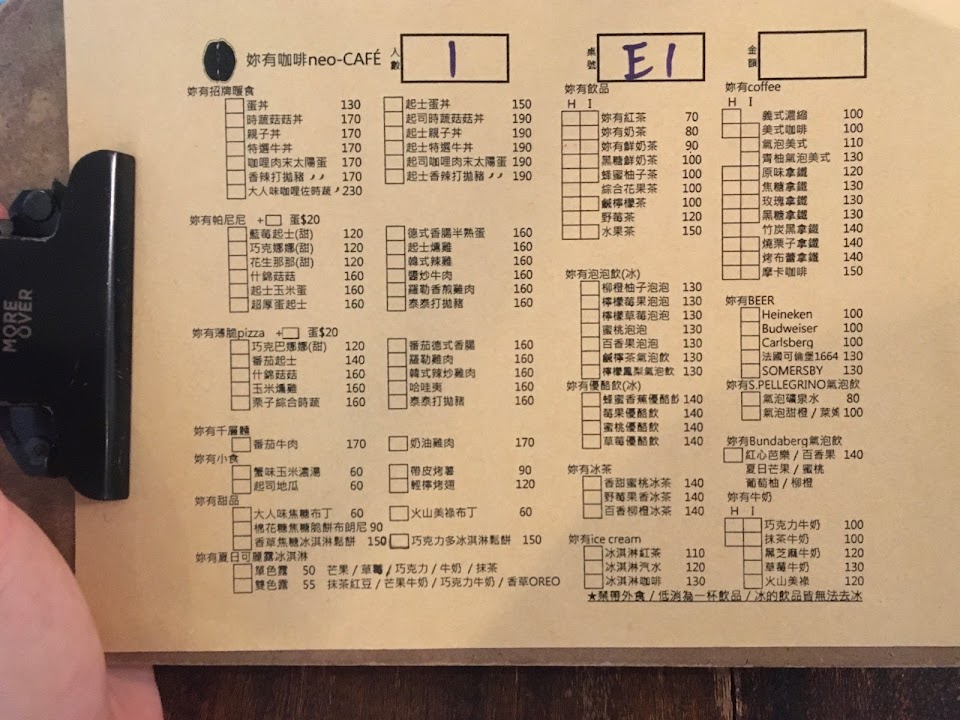 妳有咖啡neo-CAFÉ 人數 1 桌號 E1 金額
妳有招牌暖食
蛋丼 130 起士蛋丼 150
時蔬菇菇丼 170 起司時蔬菇菇丼 190
親子丼 170 起士親子丼 190
特選牛丼 170 起士特選牛丼 190
咖哩肉末太陽蛋 170 起司咖哩肉末太陽蛋 190
香辣打拋豬 170 起士香辣打拋豬 190
大人味咖哩佐時蔬 230
妳有帕尼尼 +□ 蛋$20
藍莓起士(甜) 120 德式香腸半熟蛋 160
巧克娜娜(甜) 120 起士燻雞 160
花生那那(甜) 120 韓式辣雞 160
什錦菇菇 160 醬炒牛肉 160
起士玉米蛋 160 羅勒香煎雞肉 160
超厚蛋起士 160 泰泰打拋豬 160
妳有薄脆pizza +□ 蛋$20
巧克巴娜娜(甜) 120 番茄德式香腸 160
番茄起士 140 羅勒雞肉 160
什錦菇菇 160 韓式辣炒雞肉 160
玉米燻雞 160 哈哇夷 160
栗子綜合時蔬 160 泰泰打拋豬 160
妳有千層麵
番茄牛肉 170 奶油雞肉 170
妳有小食
蟹味玉米濃湯 60 帶皮烤薯 90
起司地瓜 60 輕檸烤翅 120
妳有甜品
大人味焦糖布丁 60 火山美祿布丁 60
棉花糖焦糖脆餅布朗尼 90
香草焦糖冰淇淋鬆餅 150 巧克力多冰淇淋鬆餅 150
妳有夏日可麗露冰淇淋
單色露 50 芒果 / 草莓 / 巧克力 / 牛奶 / 抹茶
雙色露 55 抹茶紅豆 / 芒果牛奶 / 巧克力牛奶 / 香草OREO
妳有飲品
H I
妳有紅茶 70
妳有奶茶 80
妳有鮮奶茶 90
黑糖鮮奶茶 100
蜂蜜柚子茶 100
綜合花果茶 100
鹹檸檬茶 100
野莓茶 120
水果茶 150
妳有泡泡飲(冰)
柳橙柚子泡泡 130
檸檬莓果泡泡 130
檸檬草莓泡泡 130
蜜桃泡泡 130
百香果泡泡 130
鹹檸茶氣泡飲 130
檸檬鳳梨氣泡飲 130
妳有優酪飲(冰)
蜂蜜香蕉優酪飲 140
莓果優酪飲 140
蜜桃優酪飲 140
草莓優酪飲 140
妳有冰茶
香甜蜜桃冰茶 140
野莓果香冰茶 140
百香柳橙冰茶 140
妳有ice cream
冰淇淋紅茶 110
冰淇淋汽水 120
冰淇淋咖啡 130
妳有coffee
H I
義式濃縮 100
美式咖啡 100
氣泡美式 110
青柚氣泡美式 130
原味拿鐵 120
焦糖拿鐵 130
玫瑰拿鐵 130
黑糖拿鐵 130
竹炭黑拿鐵 140
燒栗子拿鐵 140
烤布蕾拿鐵 140
摩卡咖啡 150
妳有BEER
Heineken 100
Budweiser 100
Carlsberg 100
法國可倫堡1664 130
SOMERSBY 130
妳有S.PELLEGRINO氣泡飲
氣泡礦泉水 80
氣泡甜橙 / 萊姆 100
妳有Bundaberg氣泡飲
紅心芭樂 / 百香果 140
夏日芒果 / 蜜桃
葡萄柚 / 柳橙
妳有牛奶
H I
巧克力牛奶 100
抹茶牛奶 100
黑芝麻牛奶 120
草莓牛奶 130
火山美祿 120
★禁帶外食 / 低消為一杯飲品 / 冰的飲品皆無法去冰
MORE
OVER